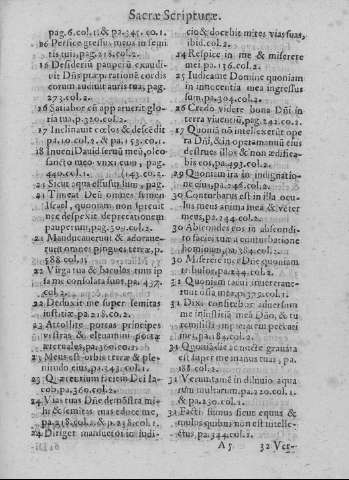 Sacræ Scripturæ.
pag.6.col.1.& pa.345.co.1.
16 Perfice gressus meos in semi
tis tuis, pag.218.col.2.
16 Desideriū pauperū exaudi-
vit Dñs præparationē cordis
eorum audivit auris tua, pag.
273.col.2.
16 Satiabor cū apparuerit glo-
ria tua, p.320.col.2.
17 Inclinavit cœlos & descēdit
pa.10.col.2. & pa.153.co.1.
18 Inveni David servū meū, oleo
sancto meo vnxi eum, pag.
440.col.1. 143.co.2.
21 Sicut aqua effusus sum, pag.
21 Timeat Deū omnes semen
Israel, quoniam non sprevit
nec despexit deprecationem
pauperum, pag.509.col.2.
21 Manducaverunt & adorave-
runt omnes pingues terræ, p.
588.col.1.
22 Virga tua & baculus tuus ip
sa me consolata sunt, pa.437.
col.2.
22 Deduxit me super semitas
iustitiæ. pa.218.co.2.
23 Attollite portas principes
vestras & elevamini portæ
æternales, pa.360.col.1.
23 Domini est orbis terræ & ple-
nitudo eius, pa.343.col.1.
23 Quærentium faciem Dei Ia-
cob, pa.360.col.2.
24 Vias tuas Dñe demōstra mi-
hi & semitas tuas edoce me,
pa.218.col.2. & p.238.col.1.
24 Diriget mansuetos in iudi-
cio & docebit mites vias suas,
ibid.col.2.
24 Respice in me & miserere
mei, pa.136.col.2.
25 Iudica me Domine quoniam
in innocentia mea ingressus
sum, pa.304.col.2.
26 Credo videre bona Dñi in
terra viventiū, pag.242.co.2.
27 Quoniā nō intellexerūt ope
ra Dñi, & in opera manuū eius
destrues illos & non ædifica-
bis eos, pa.493.col.2.
29 Quoniam ira in indignatio-
ne eius, pa.246.col.2.
30 Conturbatus est in ira ocu-
lus meus anima mea & vēter
meus, pa.244.col.2.
30 Abscondes eos in abscondi-
to faciei tuæ a conturbatione
hominum, pa.384.col.2.
30 Miserere mei Dñe quoniam
tribulor, pa.244.col.2.
31 Quoniam tacui inveterave-
runt ossa mea, pa.379.col.1.
31 Dixi confitebor adversum
me iniustitiā meā Dño, & tu
remisisti impietatem peccati
mei, pa.183.col.2.
31 Quoniā die ac nocte gravata
est super me manus tua, pa.
188.col.2.
31 Verumtamē in diluvio aqua
rum multarum, pa.220.col.1.
& pa.230.col.1.
31 Nolite fieri sicut equus &
mulus quibus non est intelle-
ctus, pa.344.col.1.
A 5 32 Ver-